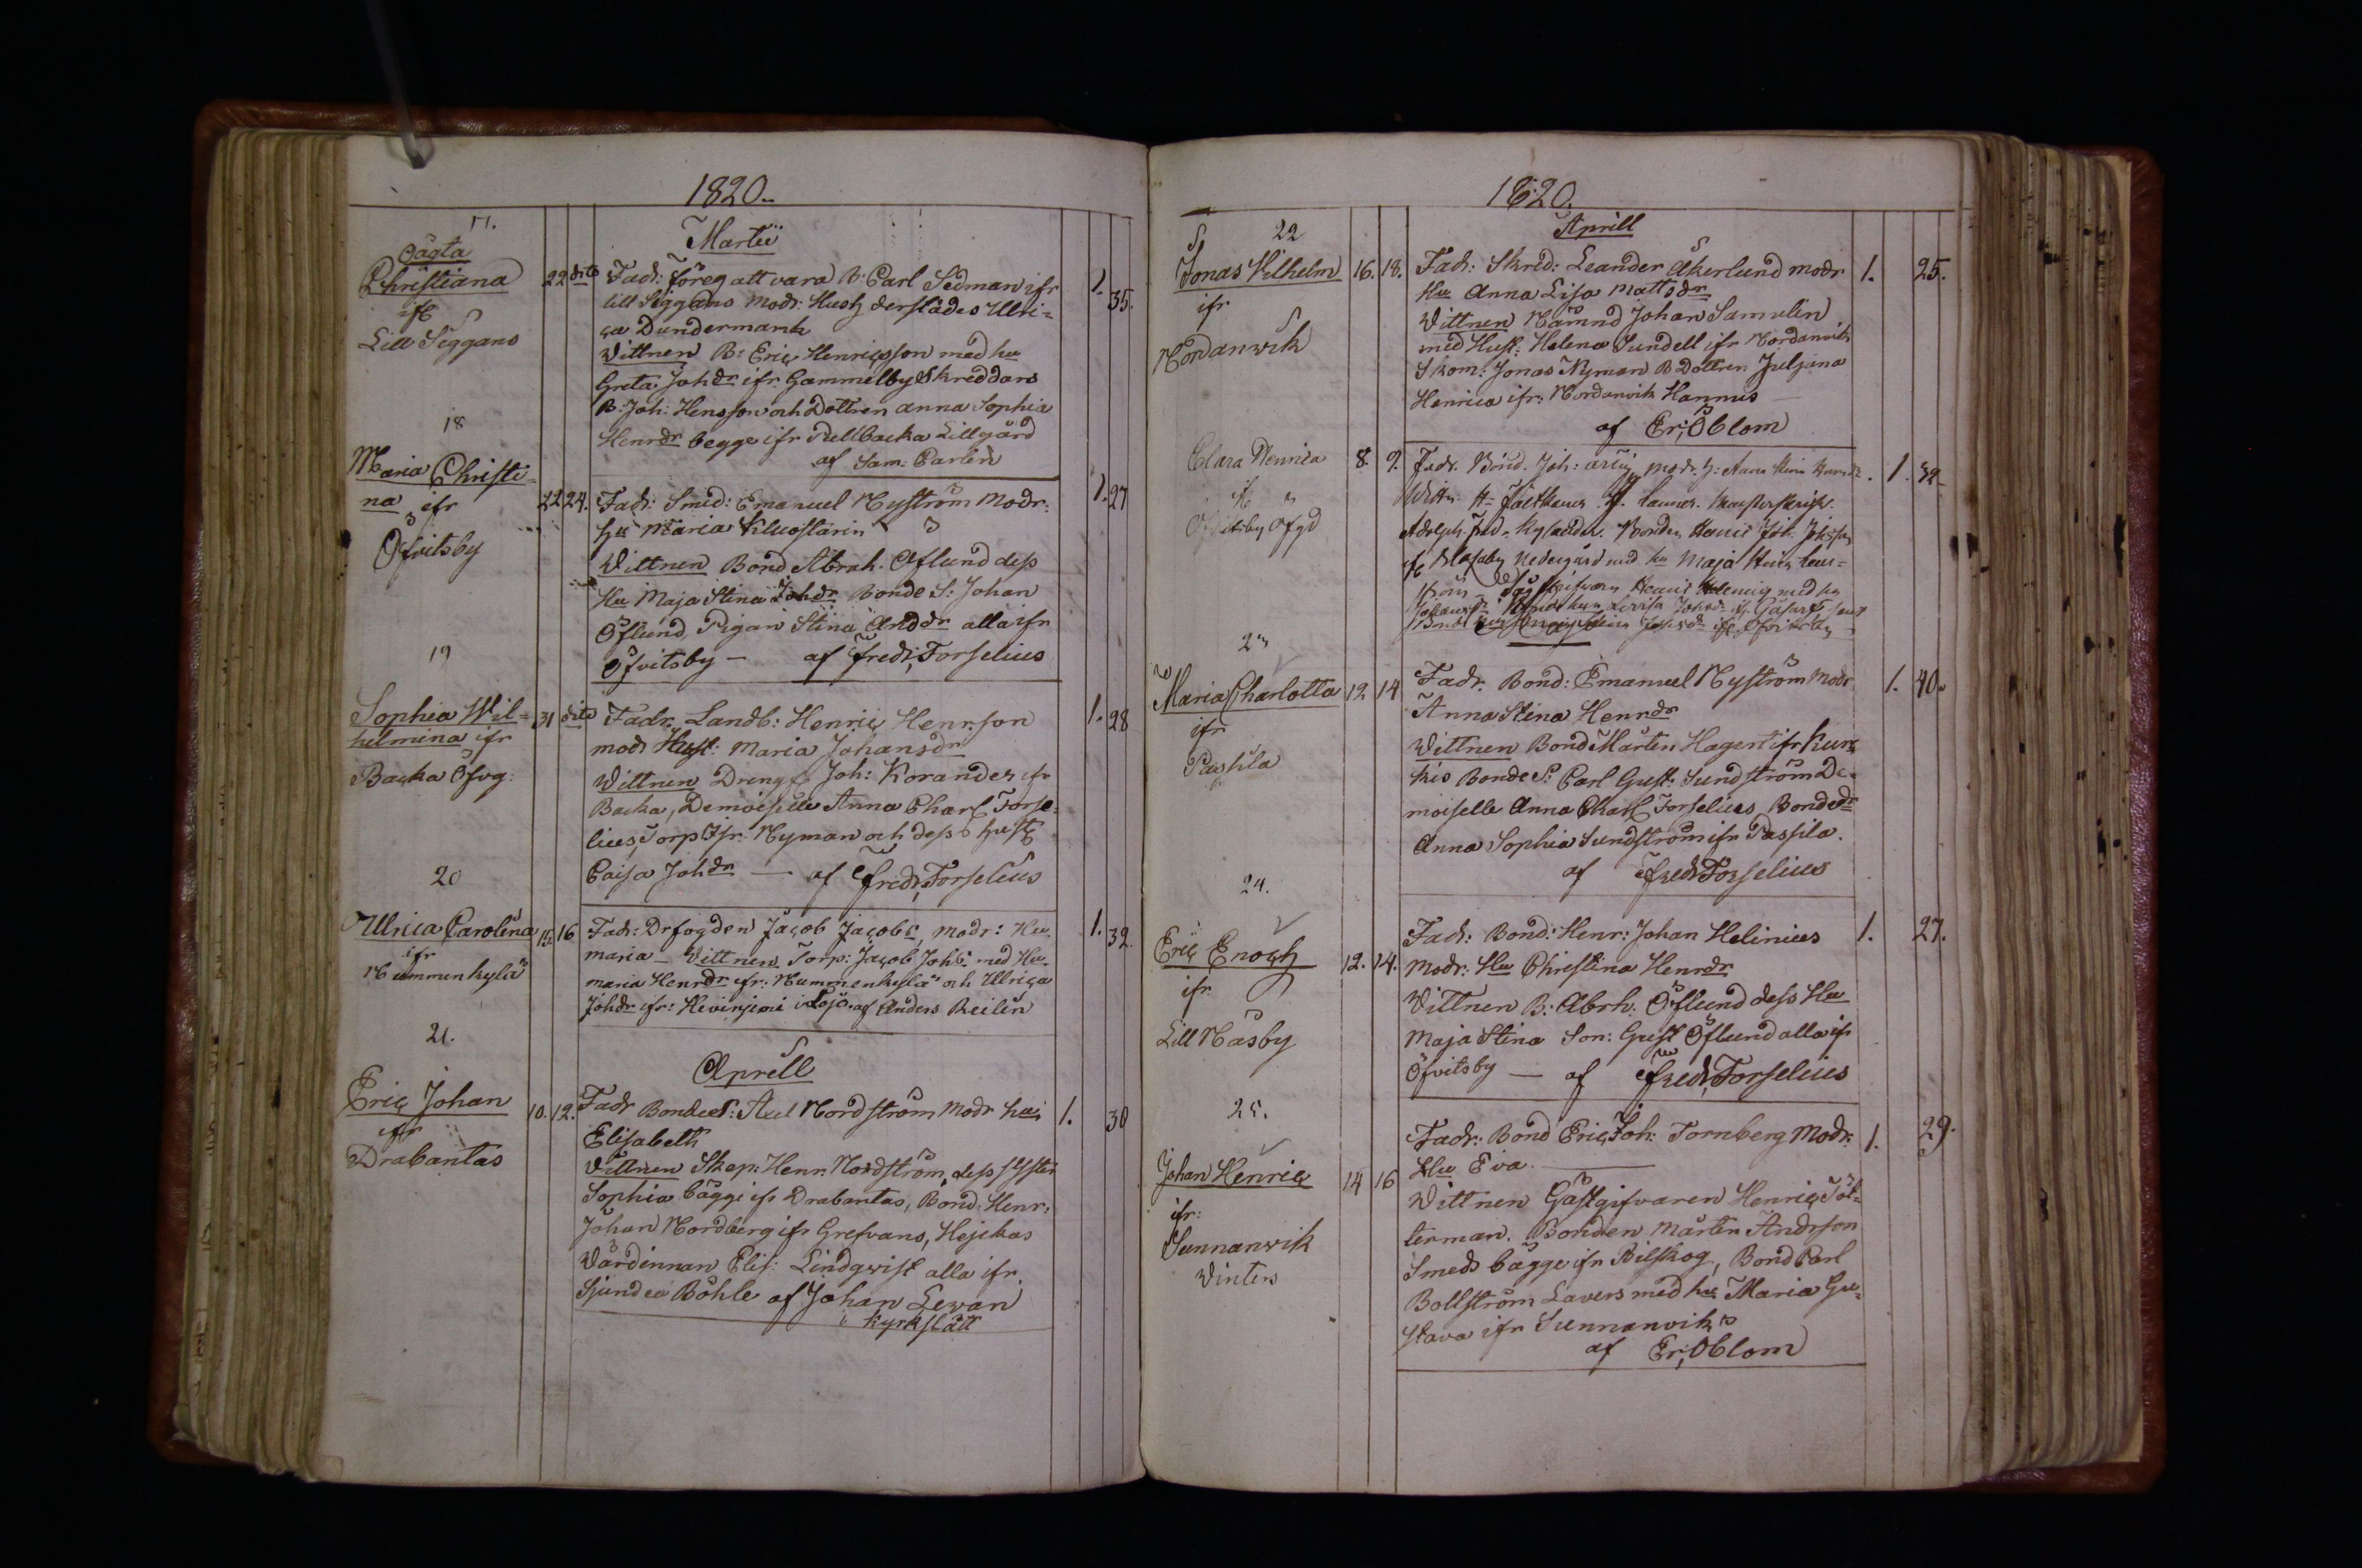 1820.
17.
Martii
Oägta
Christiana
ifr
Lill Siggans
22 dito
Fadr: föreg att vara B: Carl Sedman ifr
Lill Siggans Modr: Hust derstädes Ulri=
ca Dundermark
Vittnen B: Eric Henricsson med hu
Greta Johdr ifr Gammelby Skreddars
B: Joh: Hensson och Dottren Anna Sophia
Henrdr begge ifr Pellbacka Lillgård
af Sam: Carlen
1. 35.
18
Maria Christi=
na ifr
Öfvitsby
22 24.
Fadr: Smid: Emanuel Nyström Modr:
Hu Maria
Vittnen Bond Abrah. Öflund dess
Hu Maja Stina Johdr Bonde S: Johan
Öflund, Pigan Stina Anddr alla ifr
Öfvitsby — af Fredr; Forselius
1. 27
19
Sophia Wil=
helmina ifr
Backa Öfvg:
31 dito
Fadr. Landb: Henric Henrson
modr Hust: Maria Johansdr
Vittnen Dreng Joh: Korander ifr
Backa, Demoiselle Anna Charl Forse=
lius, Torp Nyman och dess hust
Caisa Johdr — af Fredr, Forselius
1. 28
20
Ulrica Carolina
ifr
Nummenkylä
15 16
Fadr: Drfogden Jacob Jacobs, Modr: Hu
Maria — Vittnen Torp: Jacob Johs med Hu
Maria Henrdr ifr: Nummenkylä och Ulrica
Johdr ifr: i Lojo. af Anders Reilin
1. 32
21.
Aprill
Eric Johan
ifr
Drabantas
10. 12.
Fadr Bonde S: Axel Nordström Modr hu
Elisabeth
Vittnen Skep: Henr. Nordström, dess Syster
Sophia bägge ifr Drabantas, Bond: Henr:
Johan Nordberg ifr Grefvans, Hejikas
Värdinnan Elis: Lindqvist alla ifr
Sjundeå Böhle af Johan Levan
i Kyrkslätt
1. 30
1820.
22
Aprill
Jonas Vilhelm
ifr
Nordanvik
16. 18.
Fadr: Skred: Leander Åkerlund modr
Hu Anna Lisa Mattsdr
Vittnen Nämnd Johan Samulin
med Hust: Helena Sundell ifr Nordanvik
Skom: Jonas Nyman B Dottren Juljana
Henrica ifr: Nordanvik Hannus
af Er; Öblom
1. 25.
Clara Henrica
ifr
Öfvitsby Öfgd
8. 9.
Fadr. Bond. Joh: modr. H: Anna Stina
Adolph Bonden Henric Joh:
ifr Nedergård med hu Maja Stina
Henric med hu
Lovisa
1. 32
23
Maria Charlotta
ifr
Passila
12 14
Fadr. Bond: Emanuel Nyström Modr
Anna Stina Henrdr
Vittnen Bond Mårten Hagert ifr Kur
kis Bonde S: Carl Gust: Sundström De=
moiselle Anna Charl Forselius, Bondedr
Anna Sophia Sundström ifr Passila.
af Fredr Forselius
1. 40.
24.
Eric Enoch
ifr
Lill Näsby
12. 14.
Fadr: Bond: Henr: Johan Helinius
Modr: Hu Christina Henrdr
Vittnen B: Abrh: Öflund dess Hu
Maja Stina Son: Gust Öflund alla ifr
Öfvitsby — af Fredr, Forselius
1. 27.
25.
Johan Henric
ifr:
Sunnanvik
Winters
14 16
Fadr: Bond Eric Joh: Tornberg Modr:
Hu Eva
Vittnen Gästgifvaren Henric Töt=
terman. Bonden Mårten Andrson
Smeds bägge ifr Bilskog, Bond Carl
Bollström Lavers med hu Maria Gu=
stava ifr Sunnanvik
af Er; Öblom
1. 29.